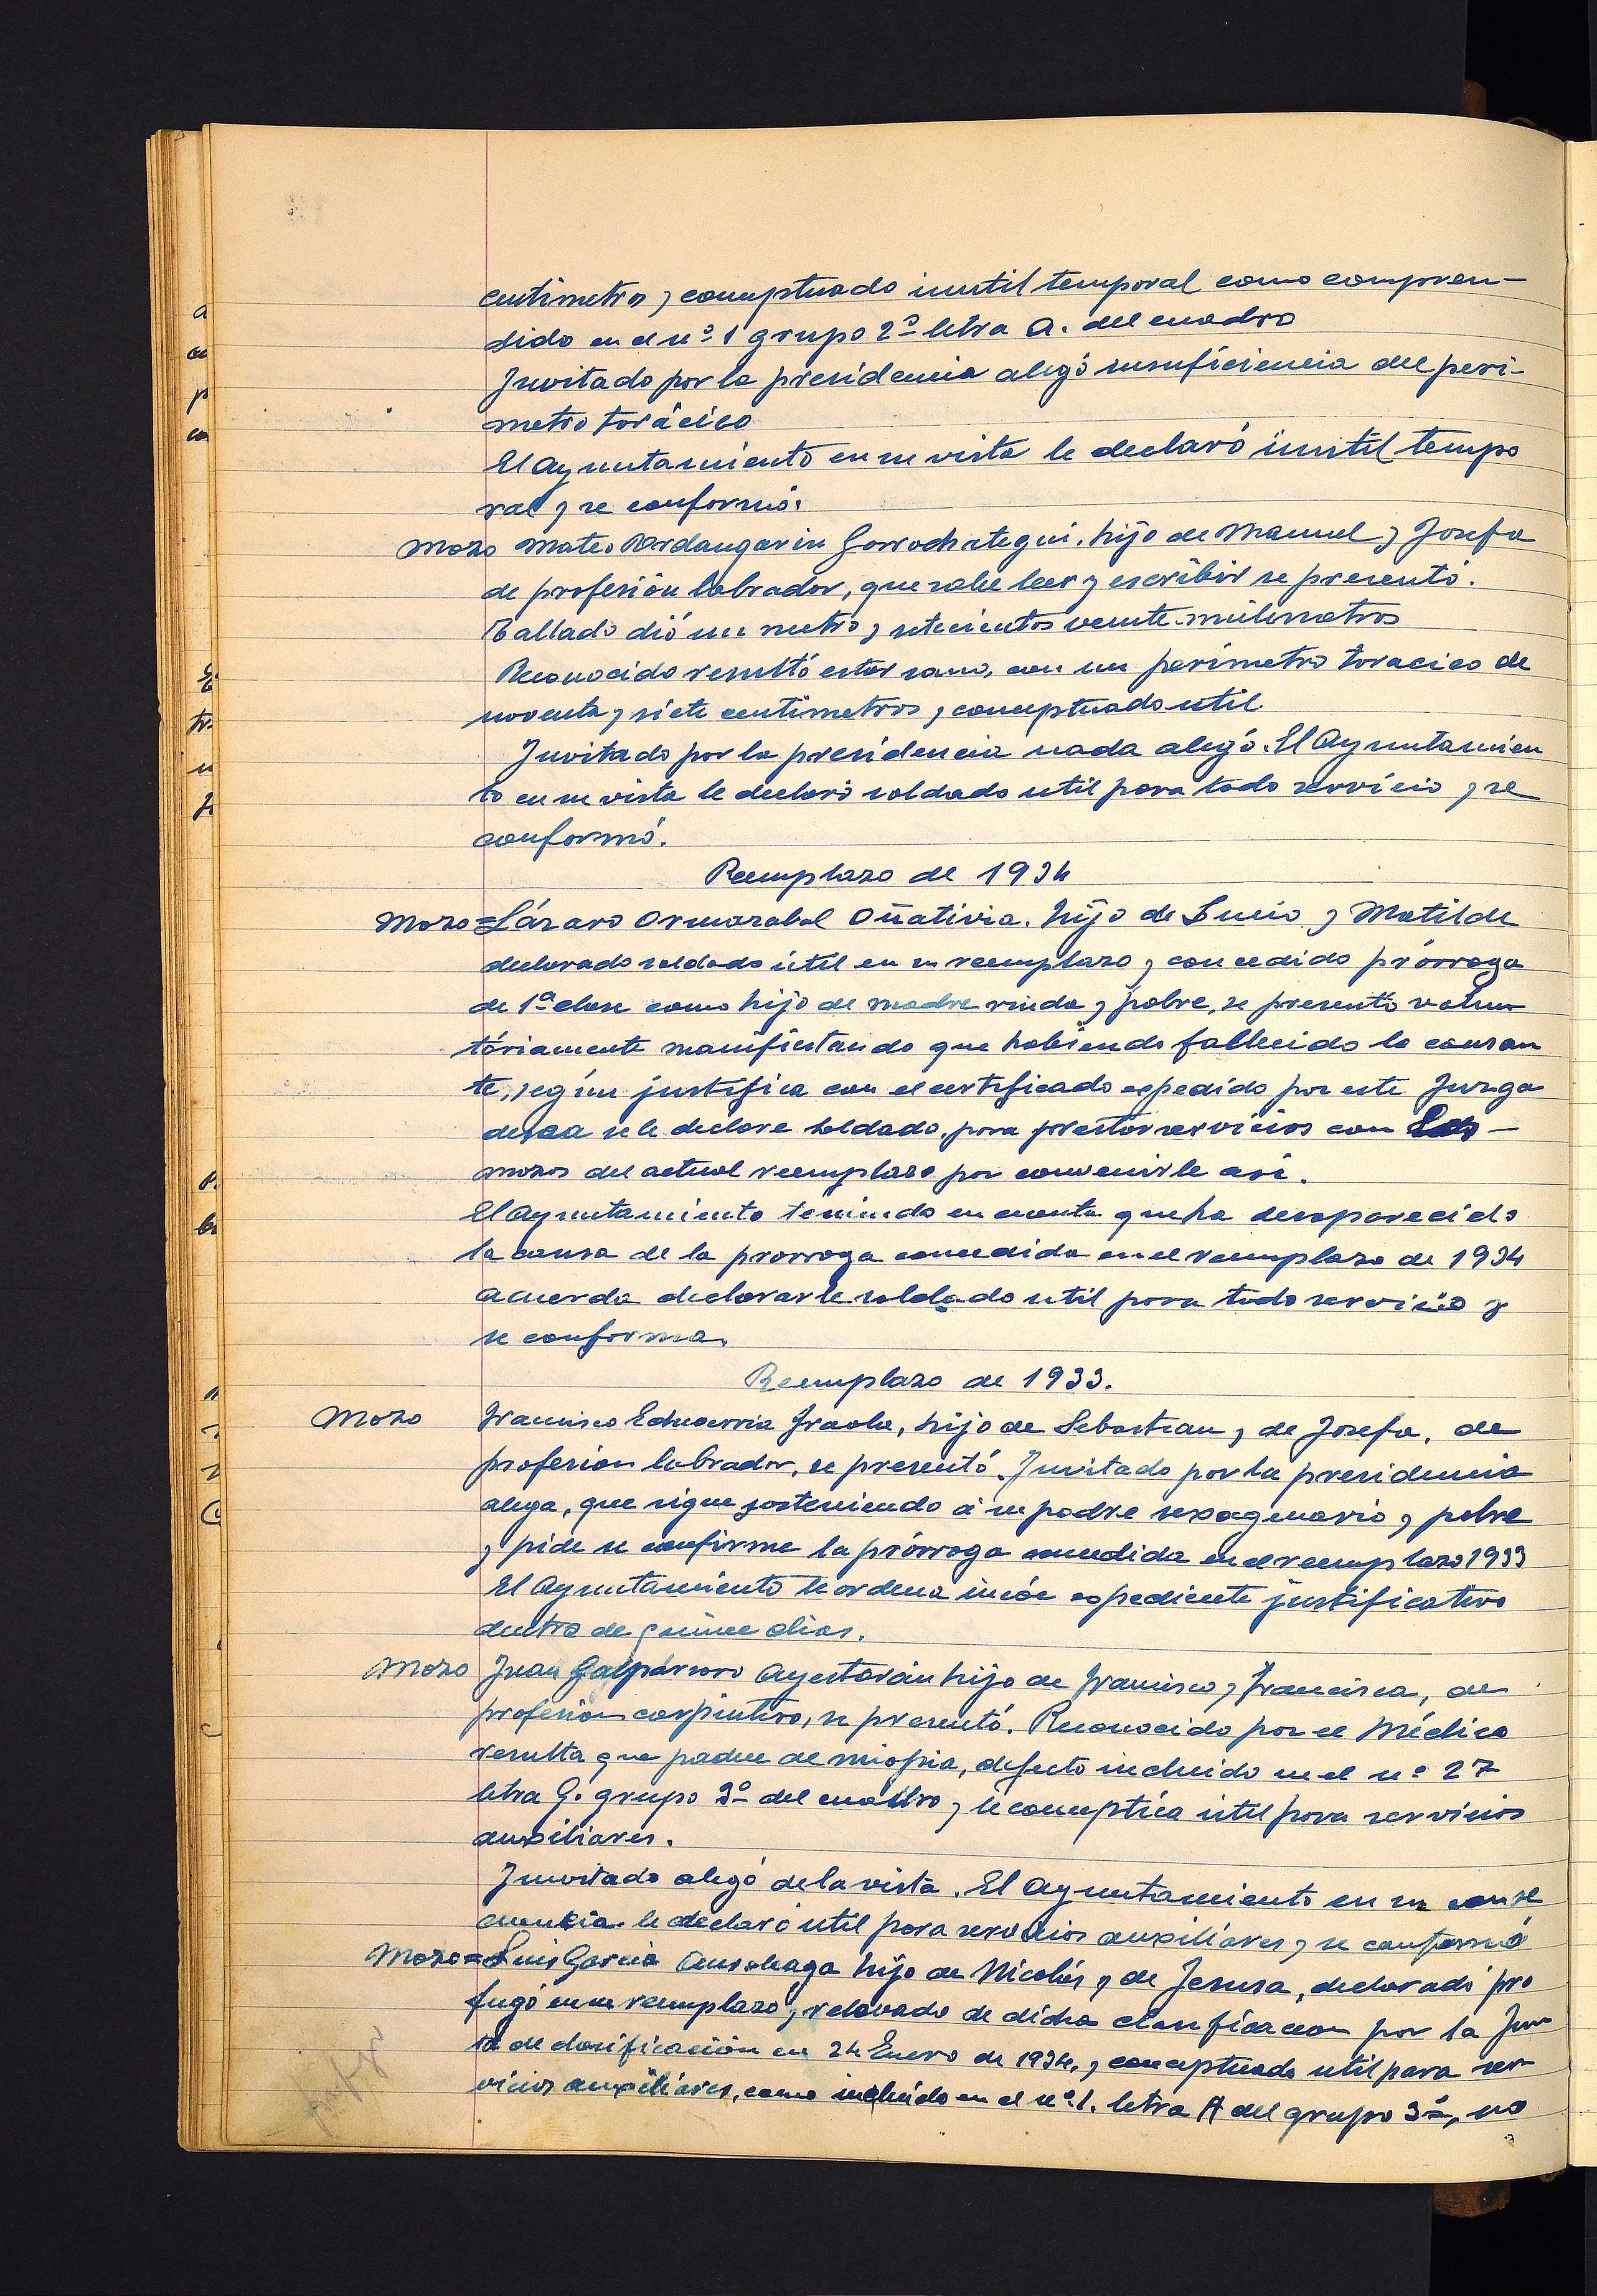 centimetros y conceptuado inutil temporal como compren-
dido en el nº 1 grupo 2º letra A. del cuadro
Invitado por la presidencia alegó insuficiencia del perí-
metro torácico
El Ayuntamiento en su vista le declaró inutil tempo
ral y se conformó.
Mozo Mateo Urdangarin Gorrochategui, hijo de Manuel y Josefa
de profesión labrador, que sabe leer y escribir se presentó.
Tallado dió un metro y setecientos veinte milimetros
Reconocido resultó estar sano, con un perímetro toracico de
noventa y siete centimetros y conceptuado util.
Invitado por la presidencia nada alegó. El Ayuntamien
to en su vista le declaró soldado util para todo servicio y se
conformó.
Reemplazo de 1934
Mozo = Lázaro Ormazabal Oñativia. hijo de Lucio y Matilde
declarado soldado útil en su reemplazo y concedido prórroga
de 1ª clase como hijo de madre viuda y pobre, se presentó volun
táriamente manifiestando que habiendo fallecido la causan
te, según justifica con el certificado expedido por este Juzga
desea se le declare soldado, para prestar servicios con los -
mozos del actual reemplazo por convenirle así.
El Ayuntamiento teniendo en cuenta que ha desaparecido
la causa de la prorroga concedida en el reemplazo de 1934
acuerda declararle soldado util para todo servicio y
se conforma.
Reemplazo de 1933.
Mozo Francisco Echeverria Iraola, hijo de Sebastian y de Josefa, de
profesion labrador, se presentó. Invitado por la presidencia
alega, que sigue sosteniendo á su padre sexagenario y pobre
y pide se confirme la prórroga concedida en el reemplazo 1933
El Ayuntamiento le ordena inicie expediente justificativo
dentro de quince dias.
Mozo Juan Galparsoro Ayestarán hijo de Francisco y Francisca, de
profesión carpintero, se presentó. Reconocido por el Médico
resulta que padece de miopia, defecto incluido en el nº 27
letra G. grupo 3º del cuadro y le conceptúa útil para servicios
auxiliares.
Invitado alegó de la vista. El Ayuntamiento en su conse
cuencia le declaró util para servicios auxiliares y se conformó
Mozo = Luis Garcia Ansoleaga hijo de Nicolás y de Jesusa, declarado pro
fugo en su reemplazo y relevado de dicha clasificacion por la Jun
ta de clasificación en 24 Enero de 1934, y conceptuado util para ser
vicios auxiliares, como incluido en el nº 1. letra A del grupo 3º, no